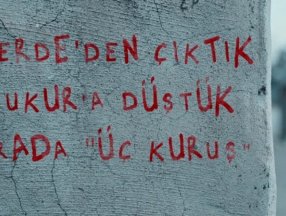 ERDE'DEN ÇIKTIK
UKUR'A DÜŞTÜK
RADA "ÜÇ KURUŞ"